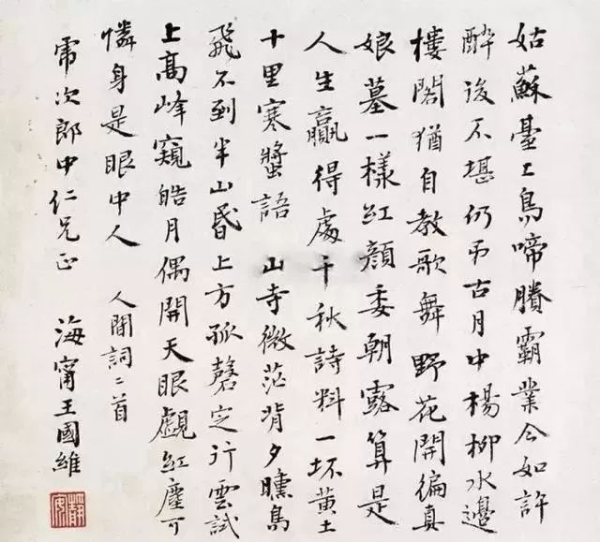 姑蘇臺上烏啼賸霸業今如許
醉後不堪仍弔古月中楊柳水邊
樓閣猶自教歌舞野花開徧真
娘墓一樣紅顏委朝露算是
人生贏得處千秋詩料一坏黃土
十里寒螿語 山寺微茫背夕曛鳥
飛不到半山昏上方孤磬定行雲試
上高峰窺皓月偶開天眼覷紅塵可
憐身是眼中人 人間詞二首
霈次郎中仁兄正 海甯王國維
靜安